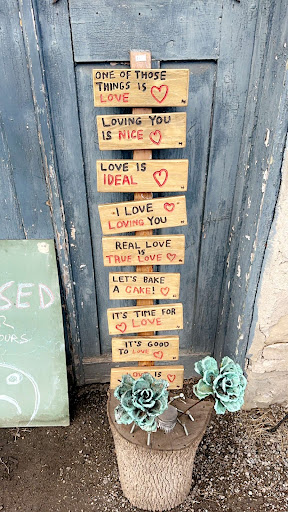 ONE OF THOSE
THINGS IS
LOVE
LOVING YOU
IS NICE
LOVE IS
IDEAL
I LOVE
LOVING YOU
REAL LOVE
IS
TRUE LOVE
LET'S BAKE
A CAKE!
IT'S TIME
FOR LOVE
IT'S GOOD
TO LOVE
IS
SED
OURS